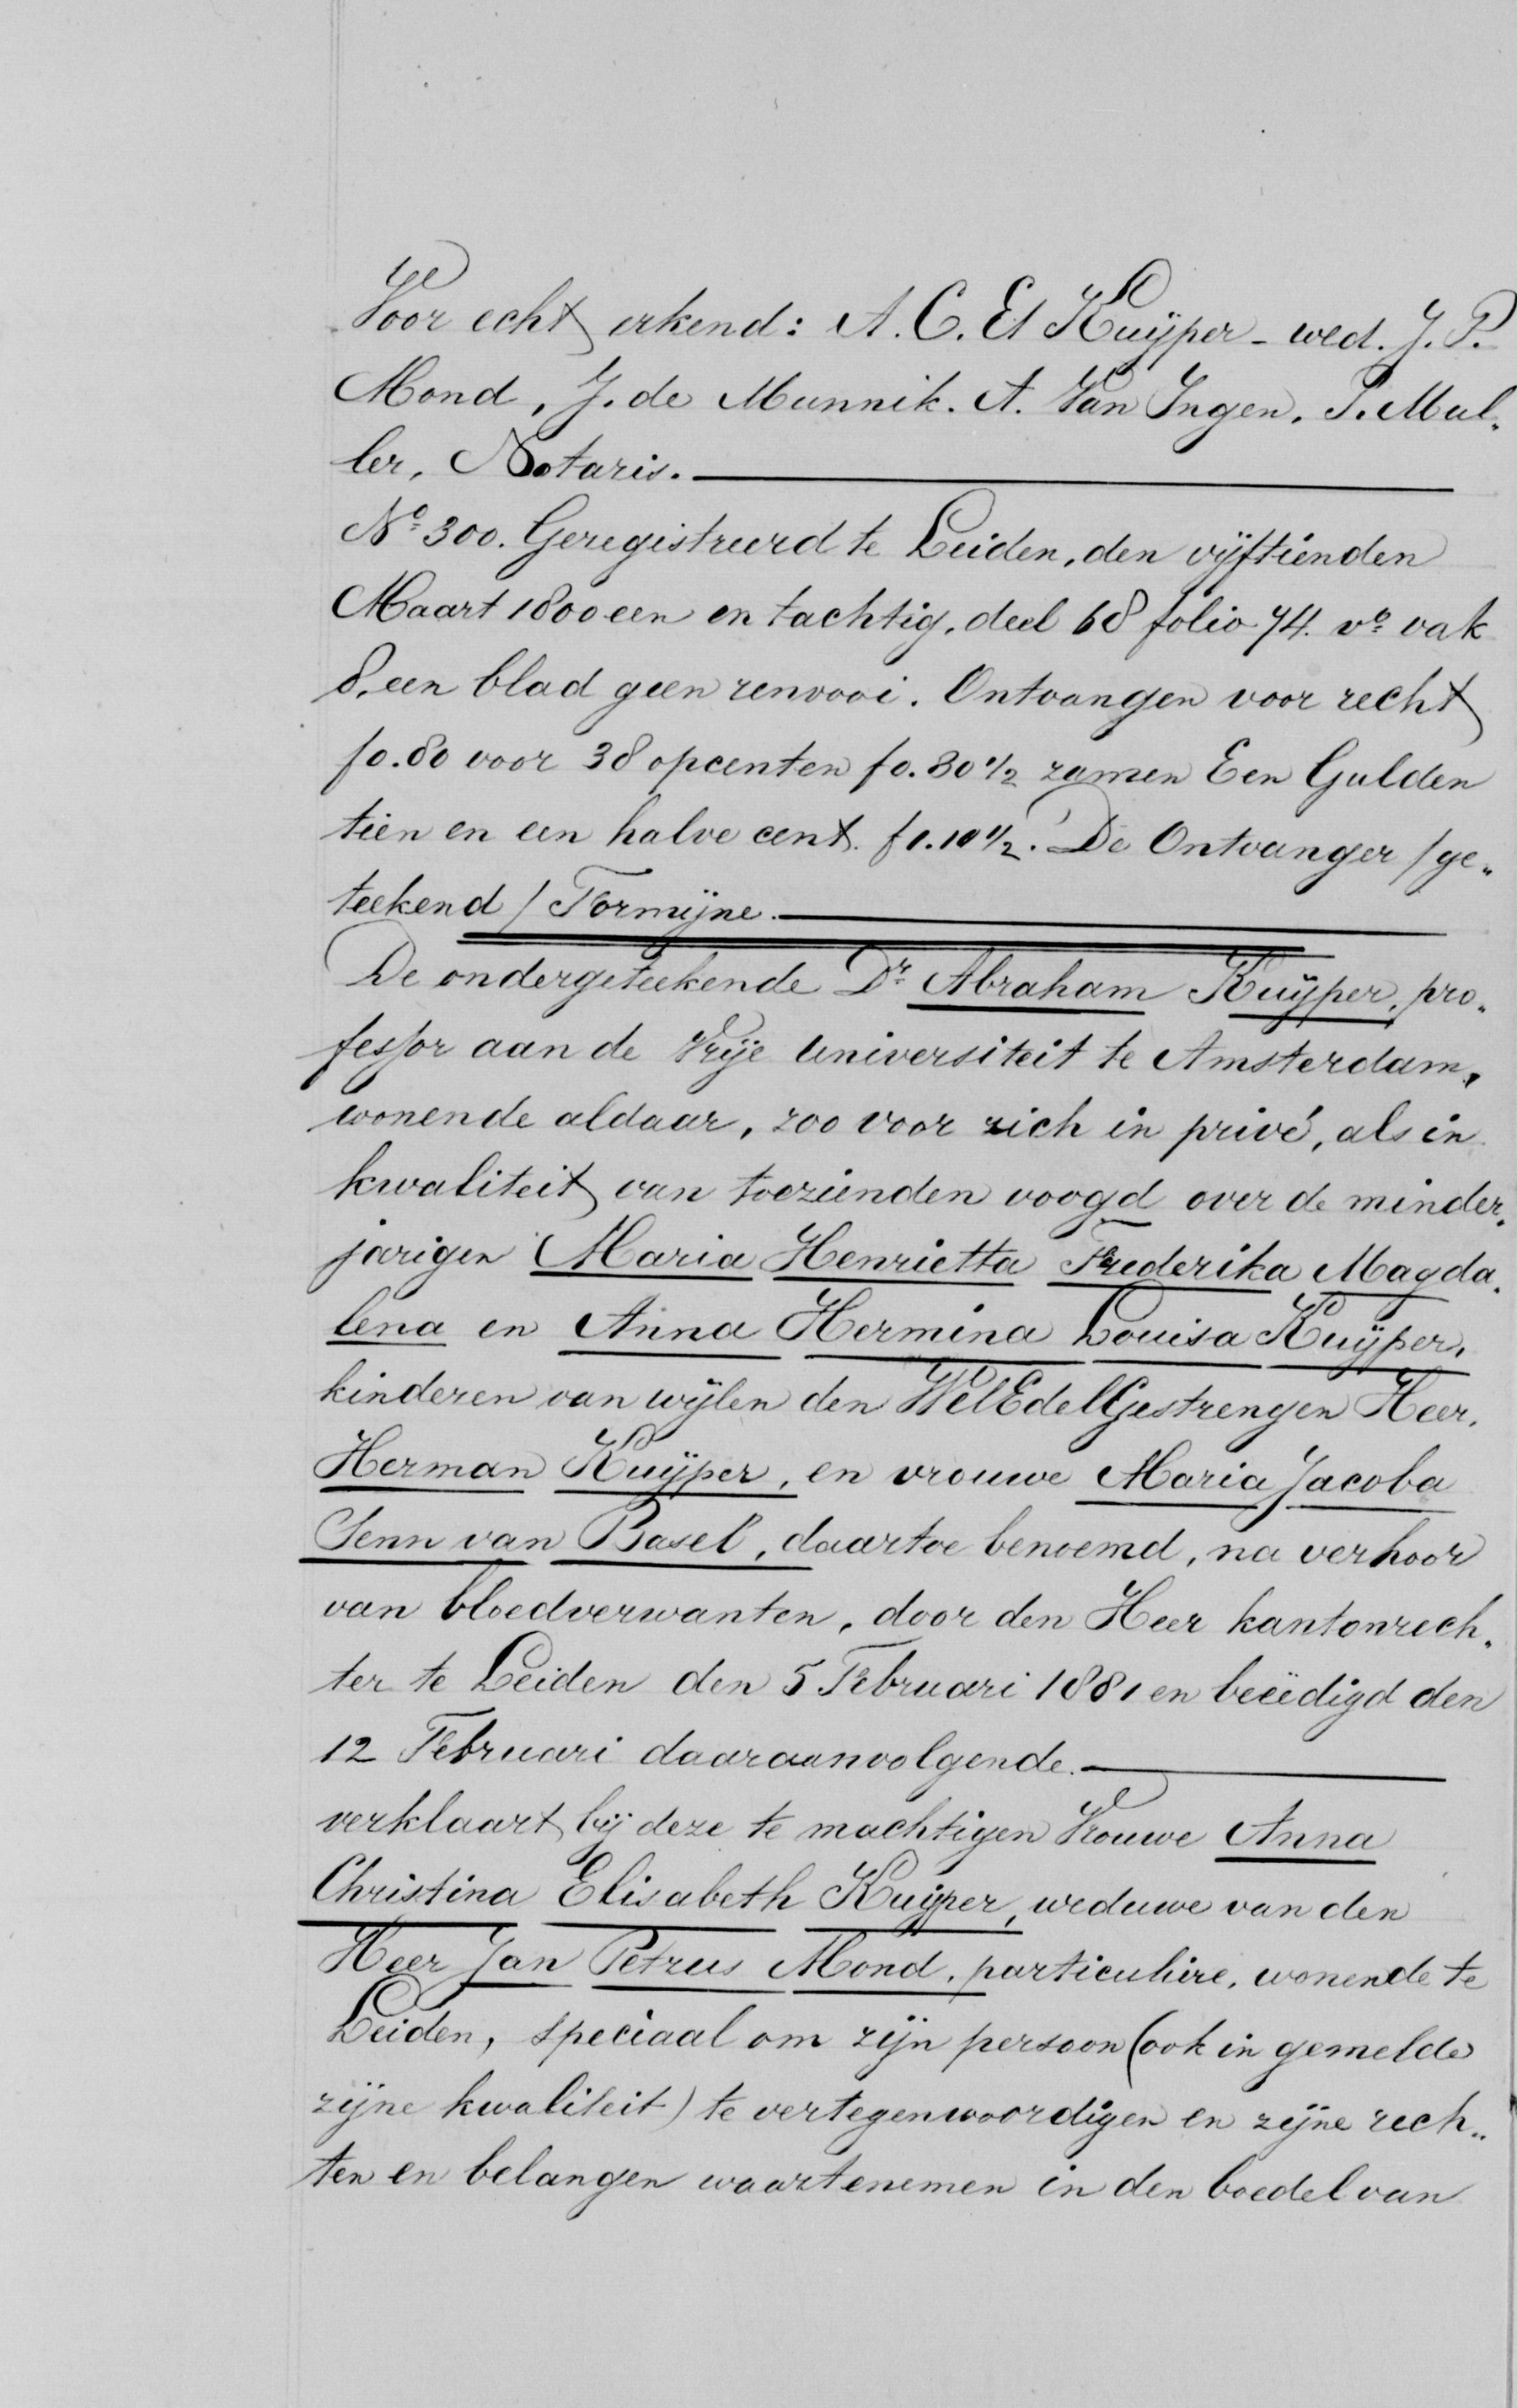 Voor echt erkend: A. C. E. Kuijper - wed. J. P.
Mond, J. de Munnik. A. Van Ingen. P. Mul„
ler, Notaris.
No. 300. Geregistreerd te Leiden, den vijftienden
Maart 1800 een en tachtig, deel 68 folio 74. vo. vak
8, een blad geen renvooi. Ontvangen voor recht
f 0.80 voor 38 opcenten f 0.30 1/2 zamen Een Gulden
tien en een halve cent. f 1.10 1/2. De Ontvanger /ge„
teekend/ Formijne.
De ondergeteekende Dr. Abraham Kuijper, pro„
fessor aan de Vrije Universiteit te Amsterdam,
wonende aldaar, zoo voor zich in privé, als in
kwaliteit van toezienden voogd over de minder„
jarigen Maria Henrietta Frederika Magda„
lena en Anna Hermina Louisa Kuijper,
kinderen van wijlen den WelEdelGestrengen Heer,
Herman Kuijper, en vrouwe Maria Jacoba
Senn van Basel, daartoe benoemd, na verhoor
van bloedverwanten, door den Heer kantonrech„
ter te Leiden den 5 Februari 1881 en beëedigd den
12 Februari daaraanvolgende.
verklaart bij deze te machtigen Vrouwe Anna
Christina Elisabeth Kuijper, weduwe van den
Heer Jan Petrus Mond, particuliere, wonende te
Leiden, speciaal om zijn persoon (ook in gemelde
zijne kwaliteit) te vertegenwoordigen en zijne rech„
ten en belangen waartenemen in den boedel van